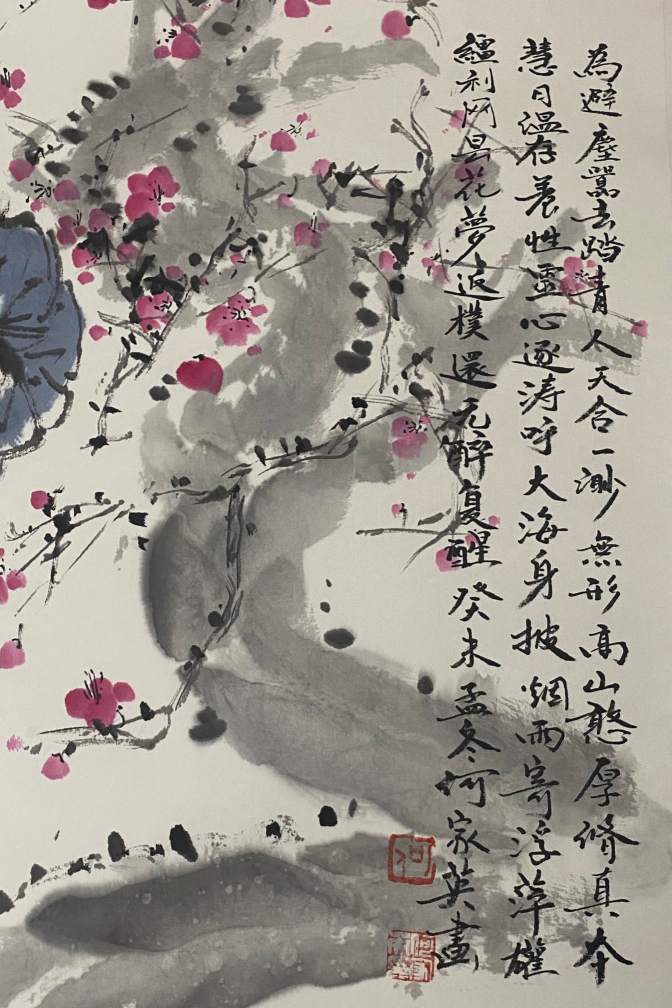 為避塵囂去踏青人天合一渺無形高山憨厚脩真本
慧日溫存養性靈心逐涛呼大海身披烟雨寄浮萍權
繮利网昙花夢返樸還元醉复醒癸未孟冬何家英畫
何